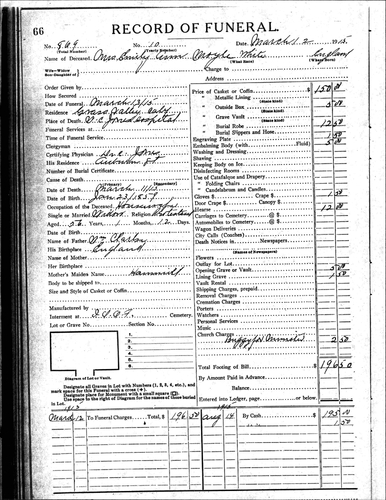 66
RECORD OF FUNERAL.
No. 869 No. 10 Date, March 12 1915
(Total Number) (Yearly Number)
Name of Deceased, Mrs. Emily Ann Moyle White England
(What Race) (Where Born)
Wife—Widow
Son-Daughter of Charge to
Address
Order Given by
How Secured
Date of Funeral March 13/15
Residence Grass Valley, Calif
Place of Death W. C. Jones Hospital
Funeral Services at
Time of Funeral Service
Clergyman
Certifying Physician Dr. C. Jones
His Residence Auburn St
Number of Burial Certificate
Cause of Death
(Primary) (Secondary)
Date of Death March 11/15
Date of Birth Jan 23/1857
Occupation of the Deceased Housewife
Single or Married Widow Religion Protestant
Aged 58 Years, 1 Months, 12 Days.
Date of Birth
Name of Father
His Birthplace England
Name of Mother
Her Birthplace
Mother's Maiden Name Hammill
Body to be shipped to
Size and Style of Casket or Coffin
Manufactured by
Interment at I.O.O.F. Cemetery.
Lot or Grave No. Section No.
Diagram of Lot or Vault.
Price of Casket or Coffin $ 150 00
" Metallic Lining
(State kind)
" Outside Box 5 00
(State kind)
" Grave Vault
(State kind)
" Burial Robe 12 50
(State kind)
" Burial Slippers and Hose
Engraving Plate 1 50
Embalming Body (with Fluid) 5 00
Washing and Dressing
Shaving
Keeping Body on Ice
Disinfecting Rooms
Use of Catafalque and Drapery
" Folding Chairs
" Candelabrum and Candles
Gloves $ Crape $ 1 50
Door Crape $ Canopy $
Hearse 12 00
Carriages to Cemetery @ $
Automobiles to Cemetery @ $
Wagon Deliveries @ $
City Calls (Coaches) @ $
Death Notices in Newspapers
(Names of Newspapers)
Flowers
Outlay for Lot
Opening Grave or Vault 5 00
Lining Grave 1 50
Vault Rental
Shipping Charges, prepaid
Removal Charges
Cremation Charges
Porters
Watchers
Personal Services
Music
Church Charges
Buggy for Minister 2 50
Total Footing of Bill $ 196 50
By Amount Paid in Advance $
Balance $
Entered into Ledger, page or below.
Designate all Graves in Lot with Numbers (1, 2, 3, 4, etc.), and
mark space for this Funeral with a cross (+).
Designate place for Monument with a small square (□).
Use space to the right of Diagram for the names of those buried
in Lot.
March 12 To Funeral Charges Total, $ 196 50 Aug 14 By Cash $ 195 00
1 50